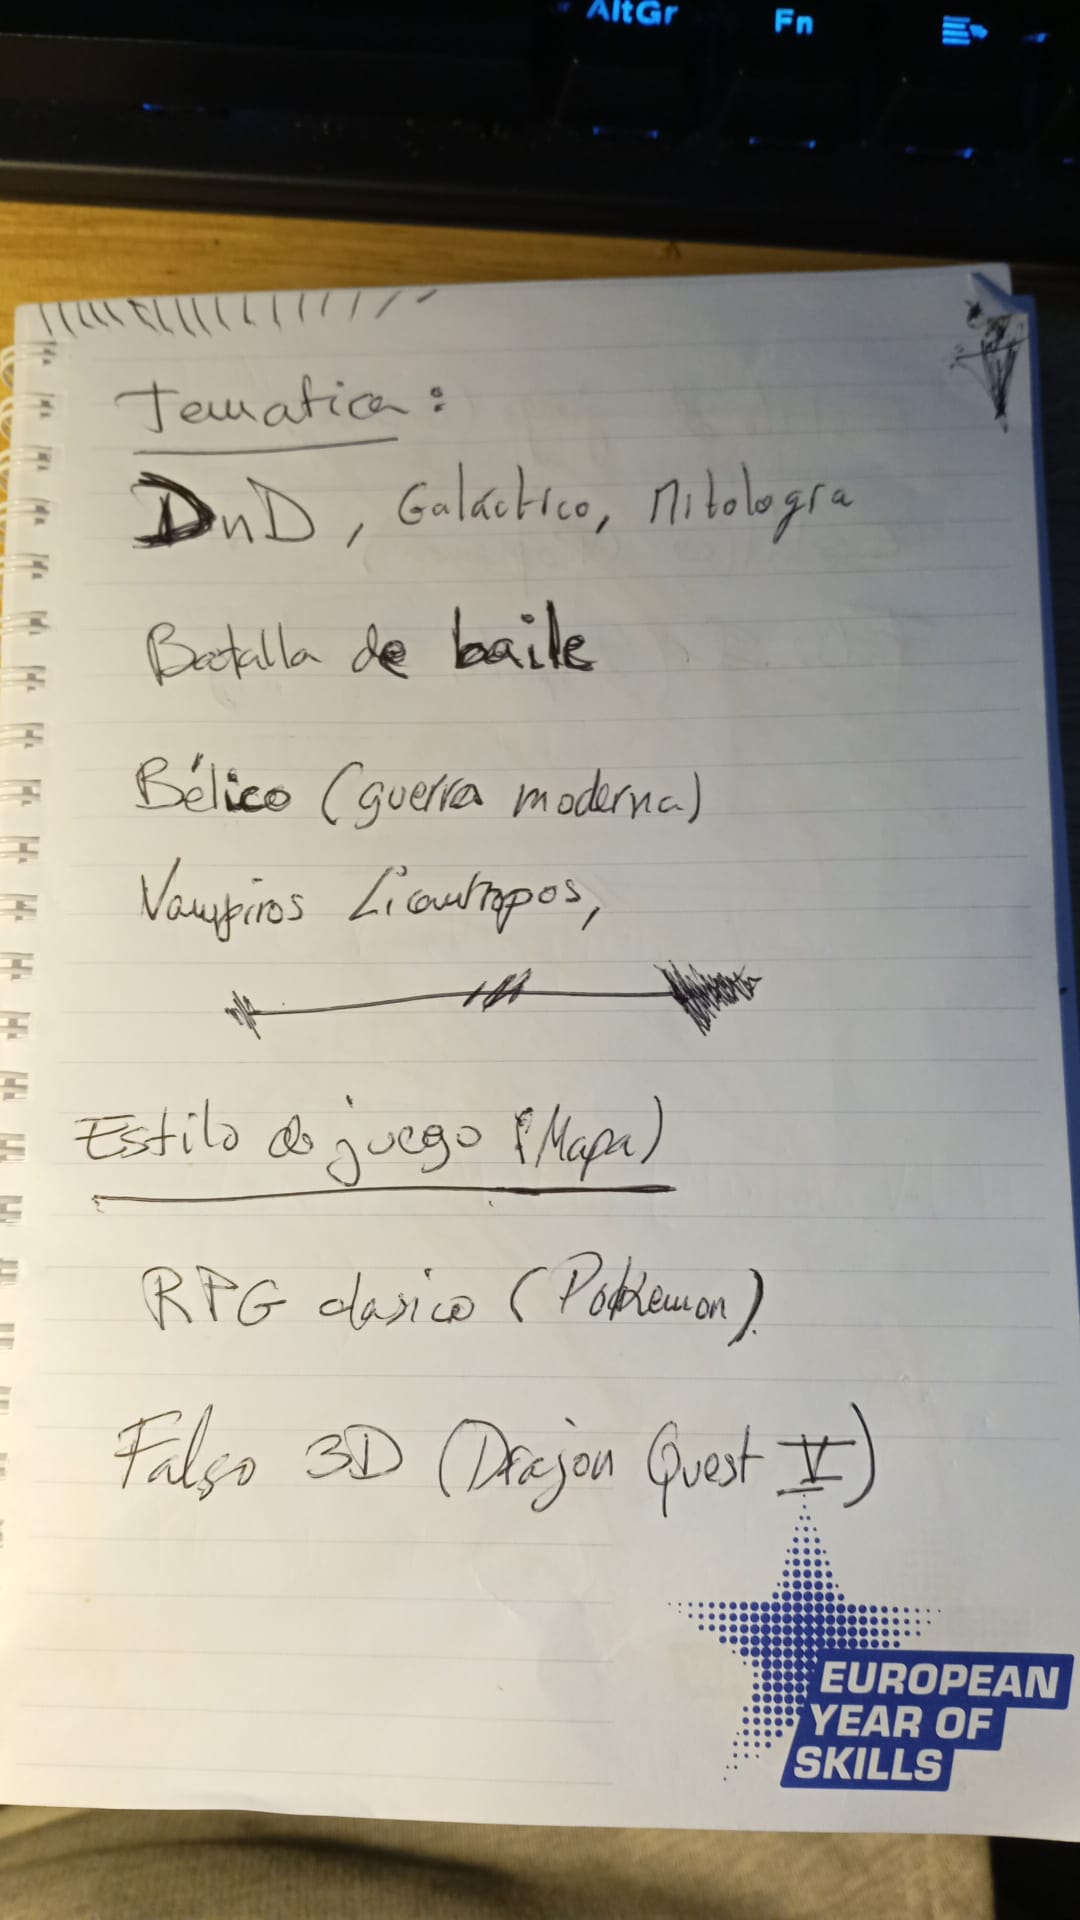 AltGr
Fn
Tematica:
DnD, Galáctico, Mitología
Batalla de baile
Bélico (guerra moderna)
Vampiros Licantropos,
Estilo de juego (Mapa)
RPG clasico (Pokkemon).
Falso 3D (Drajon Quest V)
EUROPEAN
YEAR OF
SKILLS